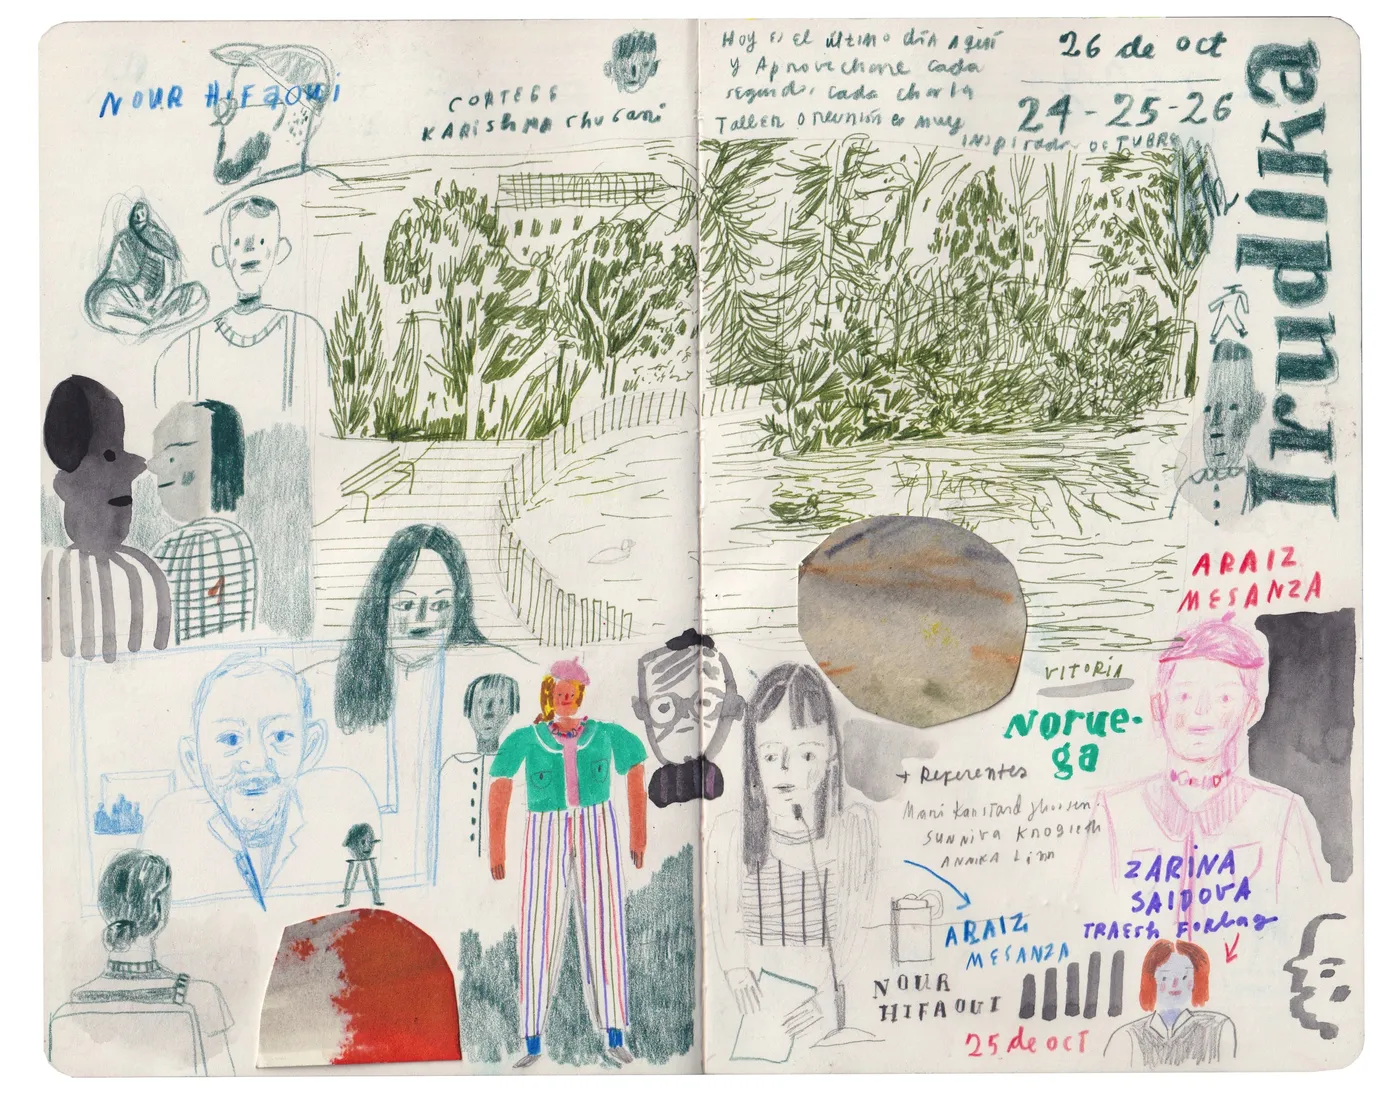 NOUR HIFAOUI
CORTEGE
KARISHMA Chugani
Hoy es el último día Aquí
y Aprovecharé cada
segundo, cada charla
Taller o reunión es muy
inspirador
26 de oct
24-25-26
OCTUBRE
Irudika
ARAIZ
MESANZA
VITORIA
Norue-
ga
+ Referentes
Mari Kanstad Johnsen
SUNNIVA
ANNIKA Linn
ZARINA
SAIDOVA
TRAESH Forlag
ARAIZ
MESANZA
NOUR
HIFAOUI
25 de oct